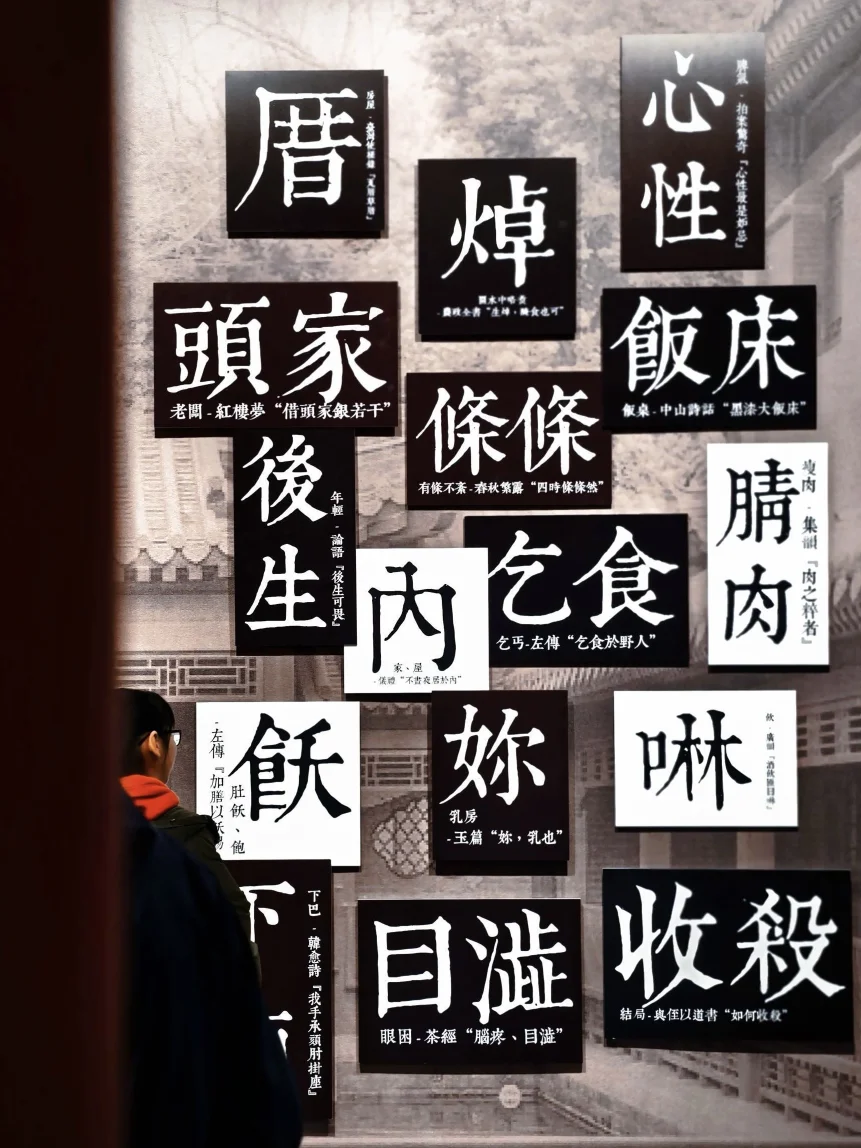 厝
房屋 -
心性
脾氣 - 拍案驚奇『心性最是妒忌』
焯
-農政全書“生焯，醃食也可”
頭家
老闆-紅樓夢“借頭家銀若干”
飯床
飯桌-中山詩話“黑漆大飯床”
條條
有條不紊-春秋繁露“四時條條然”
後生
年輕 - 論語『後生可畏』
乞食
乞丐-左傳“乞食於野人”
腈肉
瘦肉 - 集韻『肉之粹者』
內
家、屋
-儀禮“不晝夜居於內”
飫
肚飫、飽
-左傳『加膳以飫賜
妳
乳房
-玉篇“妳，乳也”
啉
飲 - 廣韻『酒
下
下巴 - 韓愈詩『我手承頦肘掛座』
目澁
眼困-茶經“腦疼、目澁”
收殺
結局-與侄以道書“如何收殺”